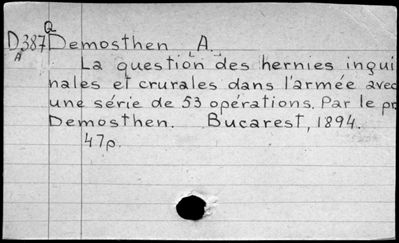 Q
D387 Demosthen A.
A
La question des hernies ingui
nales et crurales dans l'armée avec
une série de 53 opérations. Par le pr
Demosthen. Bucarest, 1894.
47p.